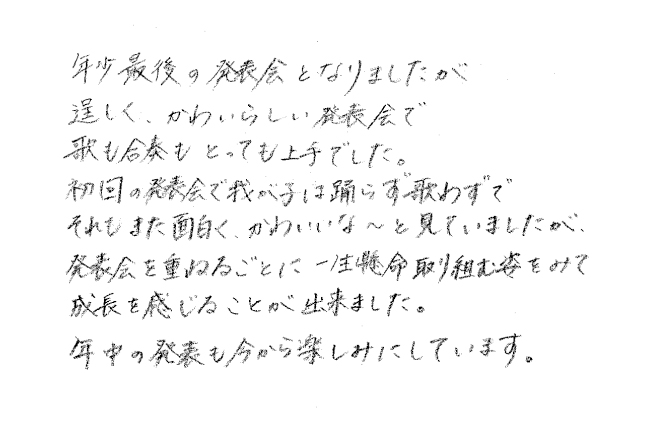 年少最後の発表会となりましたが
逞しく、かわいらしい発表会で
歌も合奏もとっても上手でした。
初回の発表会で我が子は踊らず歌わずで
それもまた面白く、かわいいな～と見ていましたが、
発表会を重ねるごとに一生懸命取り組む姿をみて
成長を感じることが出来ました。
年中の発表も今から楽しみにしています。